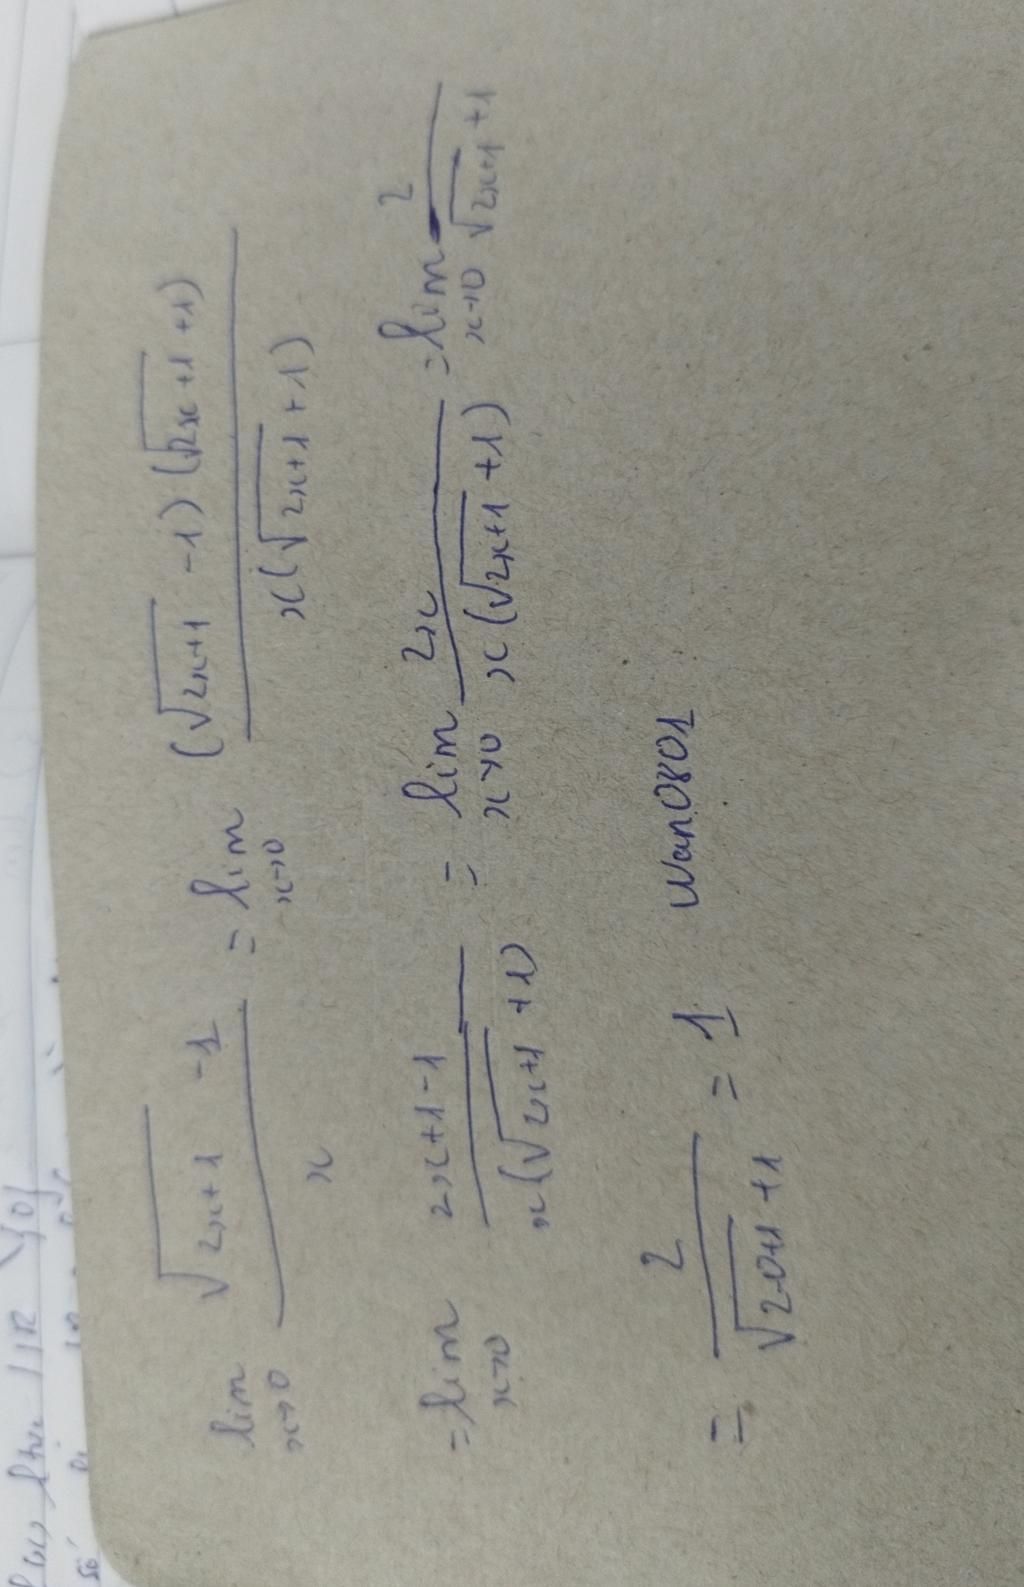 lim x→0 (√(2x+1) -1)/x = lim x→0 ((√(2x+1) -1)(√(2x+1) +1))/(x(√(2x+1) +1))
= lim x→0 (2x+1-1)/(x(√(2x+1) +1)) = lim x→0 2x/(x(√(2x+1) +1)) = lim x→0 2/(√(2x+1) +1)
= 2/(√(2.0+1) +1) = 1 wan0801